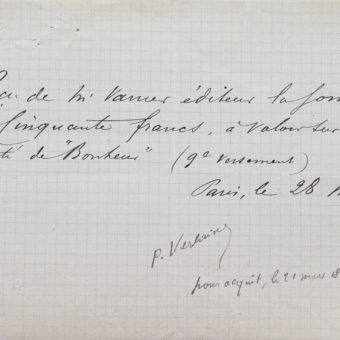 de Mr Vanier éditeur la som
Cinquante francs, à valoir sur
té de "Bonheur" (9e versement)
Paris, le 28
P. Verlaine
pour acquit, le 21 mars 18